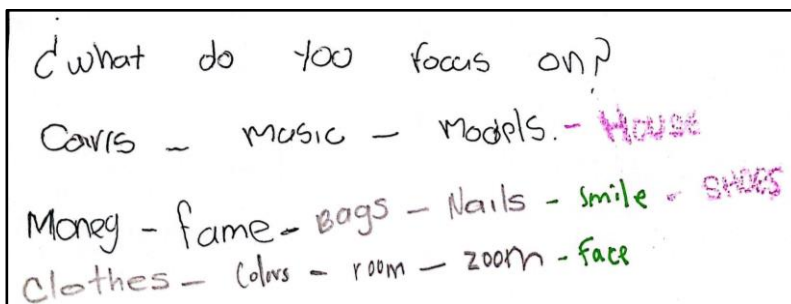 ¿what do you focus on?
Cars - music - Models. - House
Money - fame - Bags - Nails - smile - SHOES
Clothes - Colors - room - zoom - face